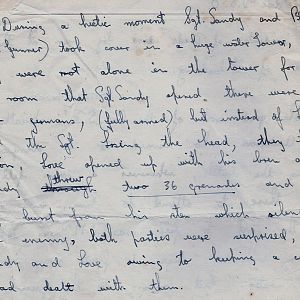 During a hectic moment Sgt. Sandy and P
Gunner) took cover in a huge water tower,
were not alone in the tower for
room that Sgt. Sandy opened there were
germans, (fully armed). but instead of
the Sgt. losing the head, they
on, Love opened up with his bren a
threw two 36 grenades and
burst from his sten which silen
enemy, both parties were surprised,
dy and Love owing to keeping a c
ad dealt with them.